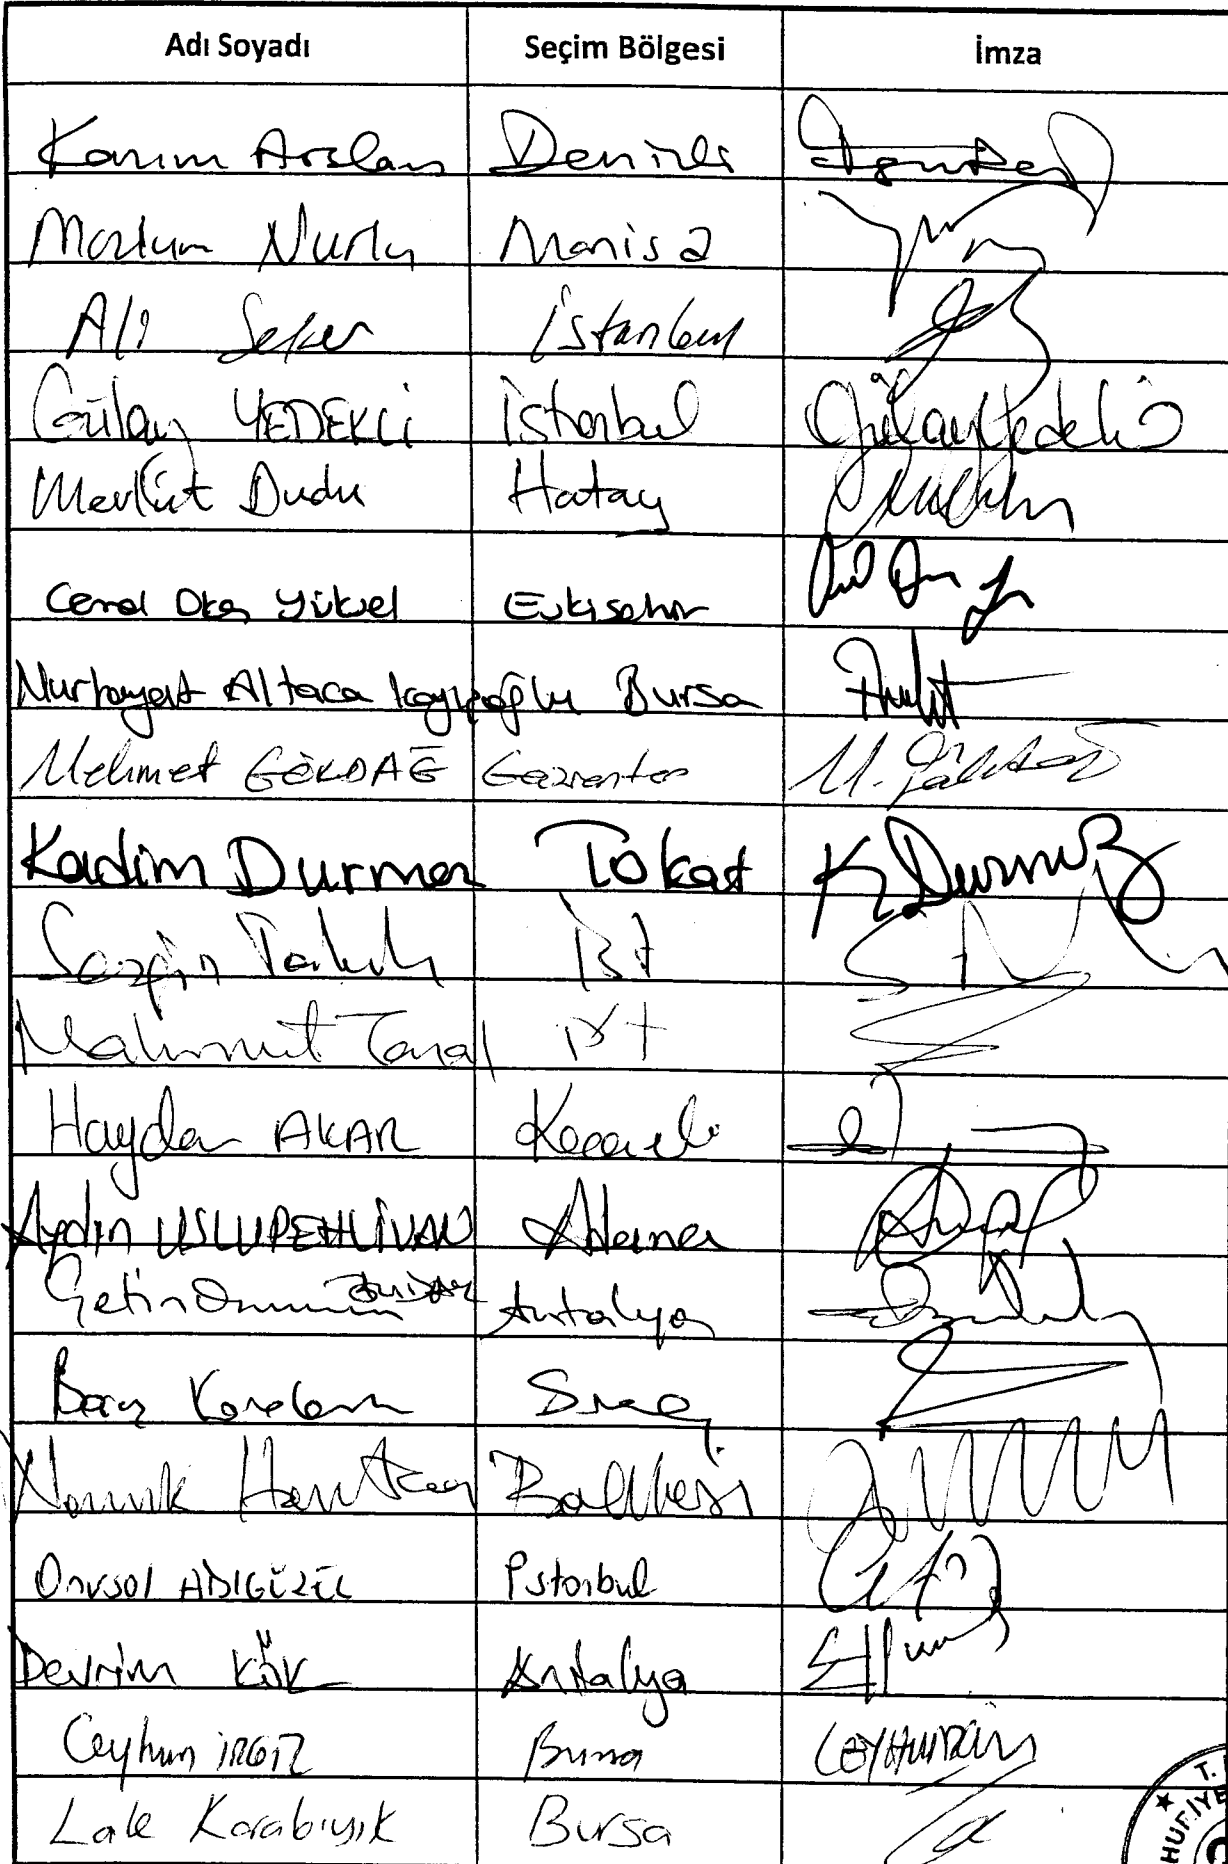 Adı Soyadı Seçim Bölgesi İmza
Kazım Arslan Denizli
Mazlum Nurlu Manisa
Ali Şeker İstanbul
Gülay YEDEKCİ İstanbul Gülay Yedekci
Mevlüt Dudu Hatay
Cemal Okan Yüksel Eskişehir
Nurhayat Altaca Kayışoğlu Bursa
Mehmet GÖKDAĞ Gaziantep M. Gökdağ
Kadim Durmaz Tokat K Durmaz
Sezgin Tanrıkulu İst
Mahmut Tanal İST
Haydar AKAR Kocaeli
Aydın USLUPEHLİVAN Adana
Çetin Osman BUDAK Antalya
Barış Karadeniz Sinop
Namık Havutça Balıkesir
Onursal ADIGÜZEL İstanbul
Devrim KÖK Antalya
Ceyhun İRGİL Bursa CEYHUN
Lale Karabıyık Bursa
T.